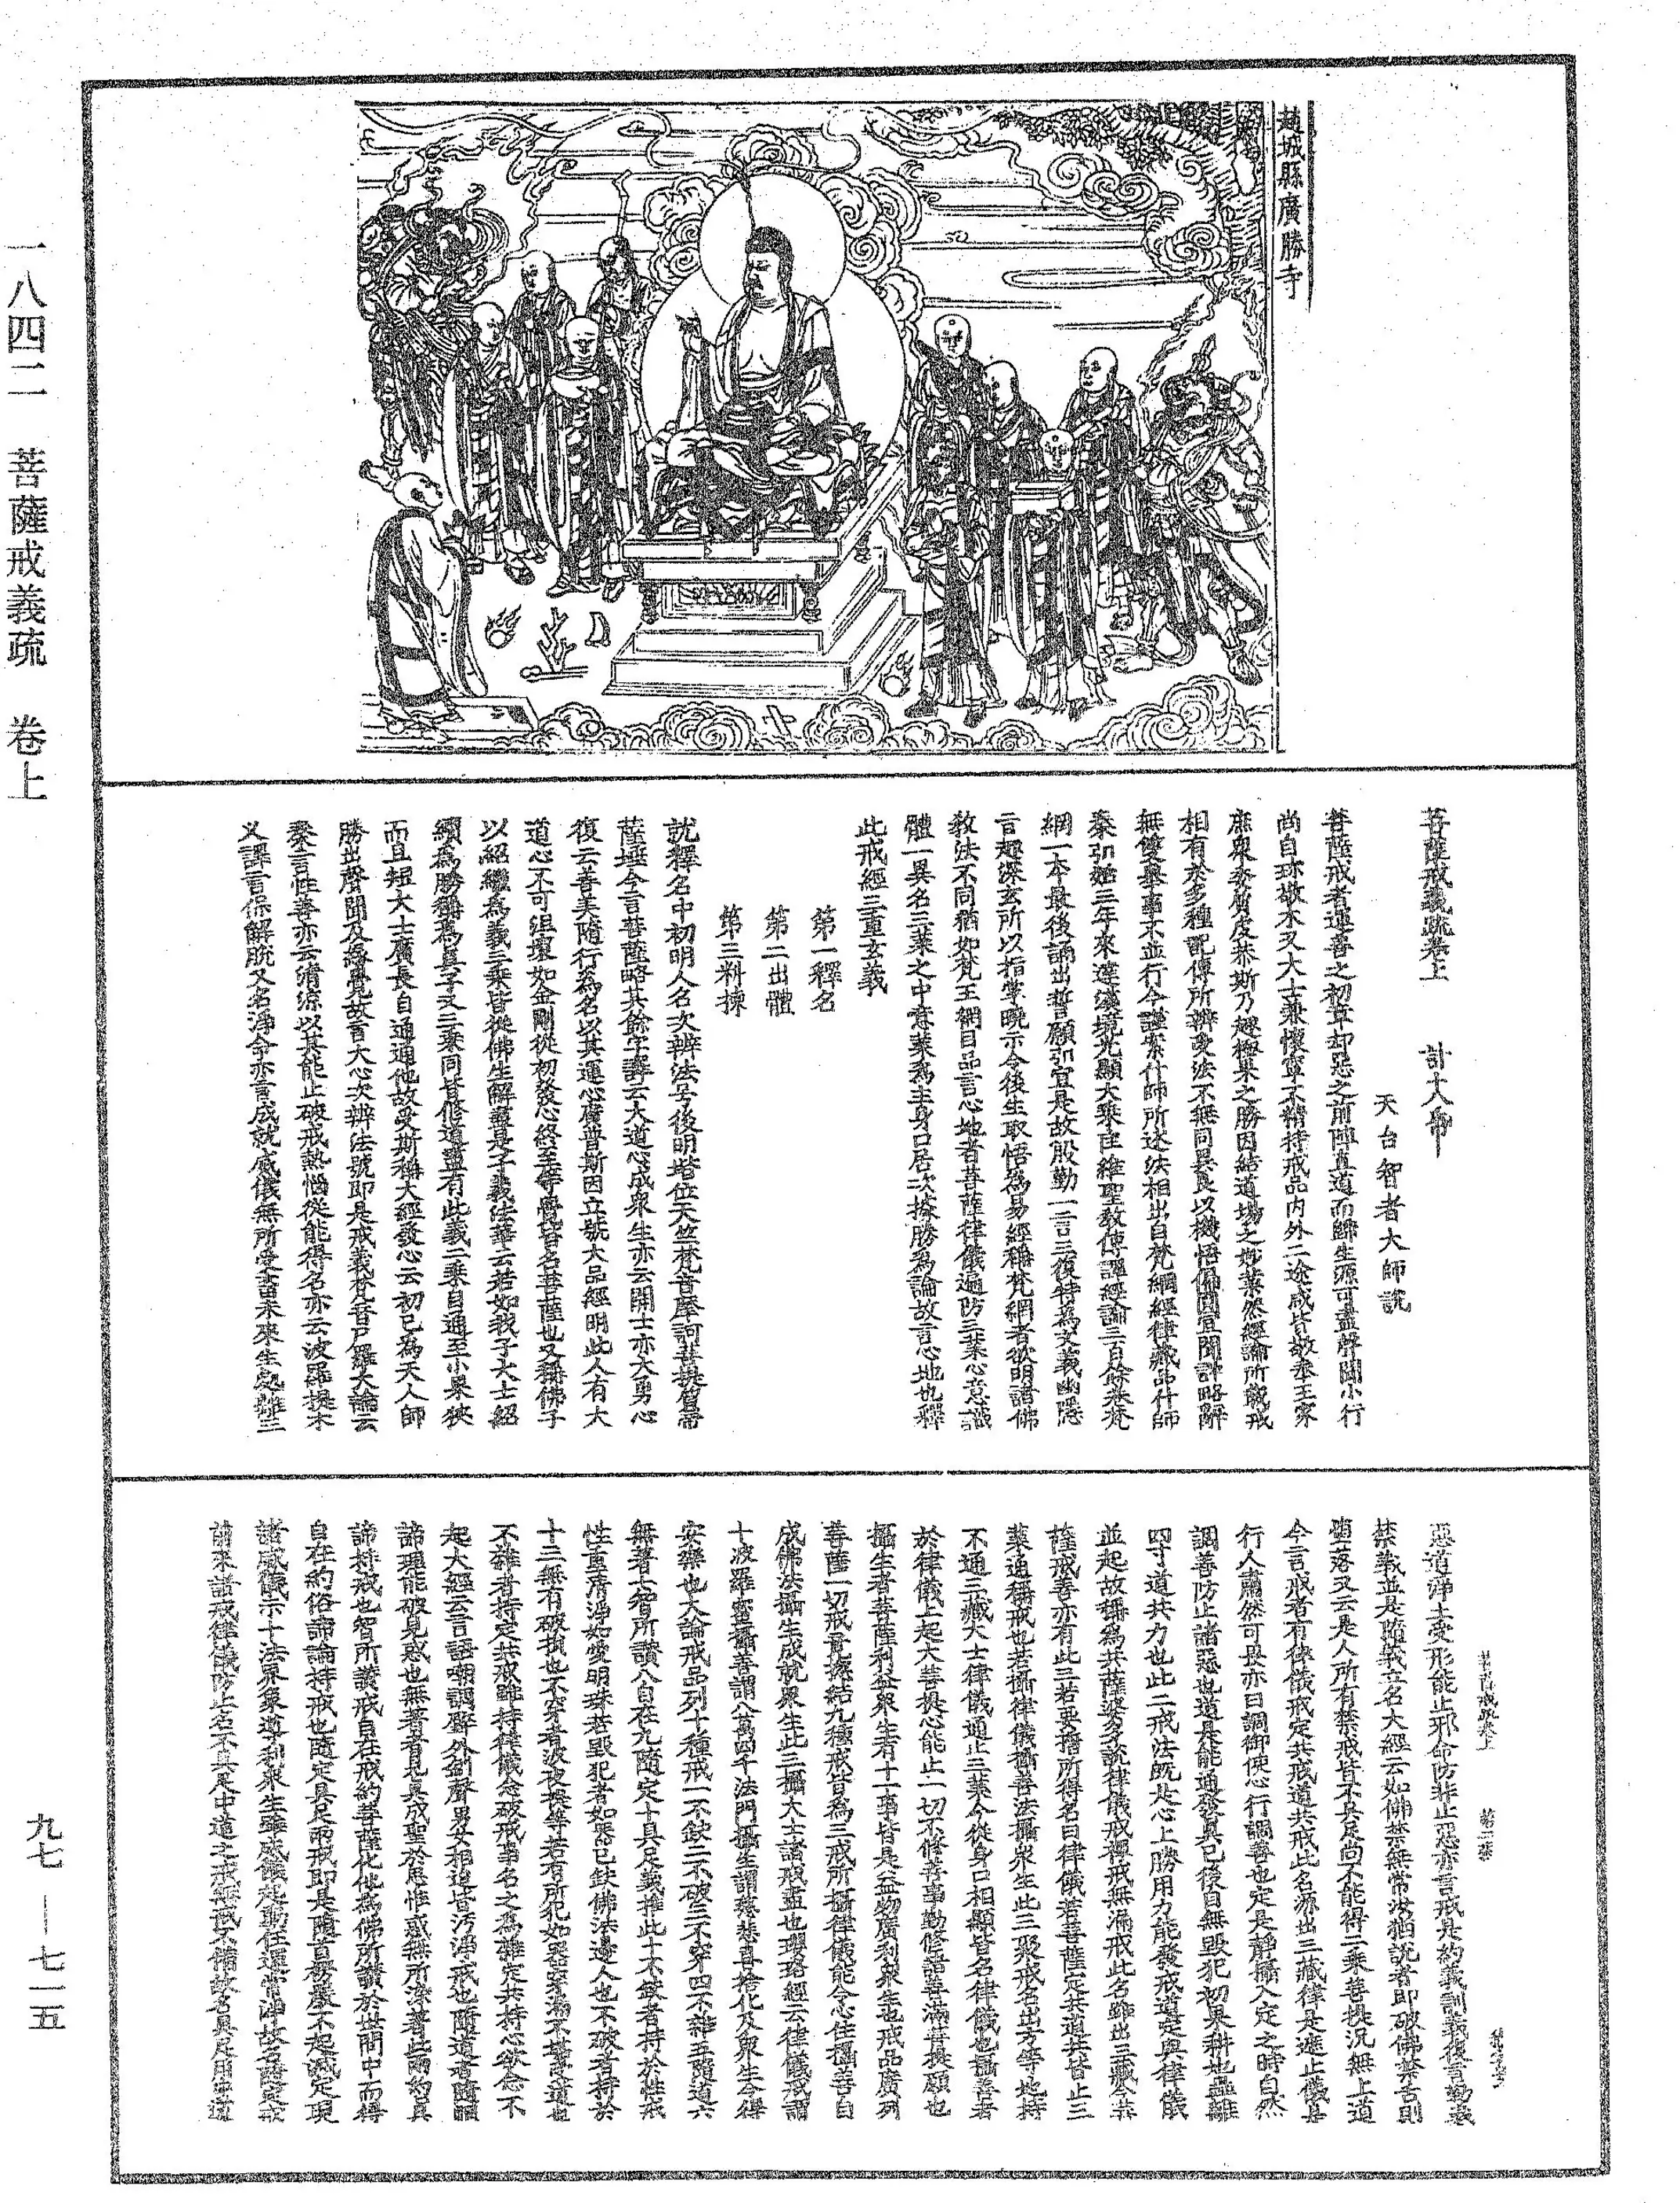 趙城縣廣勝寺
菩薩戒義疏卷上
天台智者大師說
菩薩戒者運善之初章却惡之前陣直道而歸生源可盡聲聞小行
尚自珍敬木叉大士兼懷寧不精持戒品內外二途咸皆敬奉王家
庶眾委質虔恭斯乃趣極果之勝因結道場之妙業然經論所載戒
相有於多種記傳所辨受法不無同異良以機悟偏圓宜聞詳略辭
無雙舉事不並行今謹案什師所述法相出自梵網經律藏品什師
秦弘始三年來達漢境光顯大乘匡維聖教傳譯經論三百餘卷梵
網一本最後誦出誓願弘宣是故殷勤一言三復特為文義幽隱
言趣深玄所以指掌曉示令後生取悟為易經稱梵網者欲明諸佛
教法不同猶如梵王網目品言心地者菩薩律儀遍防三業心意識
體一異名三業之中意業為主身口居次據勝為論故言心地也釋
此戒經三重玄義
第一釋名
第二出體
第三料揀
說釋名中初明人名次辨法号後明堦位天竺梵音摩訶菩提質帝
薩埵今言菩薩略其餘字譯云大道心成眾生亦云開士亦大勇心
復云善美隨行為名以其運心廣普斯因立號大品經明此人有大
道心不可沮壞如金剛從初發心終至等覺皆名菩薩也又稱佛子
以紹繼為義三乘皆從佛生解盡是子義法華云若如我子大士紹
續為勝稱為真子又三乘同皆修道盡有此義二乘自通至小果狹
而且短大士廣長自通通他故受斯稱大經發心云初已為天人師
勝出聲聞及緣覺故言大心次辨法號即是戒義梵音尸羅大論云
秦言性善亦云清涼以其能止破戒熱惱從能得名亦云波羅提木
叉譯言保解脫又名淨命亦言成就威儀無所受畜未來生處離三
惡道淨土受形能止邪命防非止惡亦言戒是約義訓義復言勒義
禁義並是隨義立名大經云如佛禁無常汝猶說者即破佛禁舌則
墮落又云是人所有禁戒皆不具足尚不能得二乘菩提況無上道
今言戒者有律儀戒定共戒道共戒此名源出三藏律是遮止儀是
行人肅然可畏亦曰調御使心行調善也定是靜攝入定之時自然
調善防止諸惡也道是能通發真已後自無毀犯初果耕地蟲離
四寸道共力也此二戒法既是心上勝用力能發戒道定與律儀
並起故稱為共薩婆多說律儀戒禪戒無漏戒此名歸出三藏今菩
薩戒善亦有此三若要擔所得名曰律儀若菩薩定共道共皆止三
業通稱戒也若攝律儀攝善法攝眾生此三聚戒名出方等地持
不通三藏大士律儀通止三業今從身口相顯皆名律儀也攝善者
於律儀上起大菩提心能止一切不修善事勤修諸善滿菩提願也
攝生者菩薩利益眾生有十一事皆是益物廣利眾生也戒品廣列
菩薩一切戒竟總結九種戒皆為三戒所攝律儀能令心住攝善自
成佛法攝生成就眾生此三攝大士諸戒盡也瓔珞經云律儀戒謂
十波羅蜜攝善謂八萬四千法門攝生謂慈悲喜捨化及眾生令得
安樂也大論戒品列十種戒一不缺二不破三不穿四不雜五隨道六
無著七智所讚八自在九隨定十具足義推此十不缺者持於性戒
性重清淨如愛明珠若毀犯者如器已缺佛法邊人也不破者持於
十三無有破損也不穿者波夜提等若有所犯如器穿漏不堪受道也
不雜者持定共戒雖持律儀念破戒事名之為雜定共持心欲念不
起大經云言語嘲調壁外釧聲男女相追皆污淨戒也隨道者隨順
諦理能破見惑也無著者見真成聖於思惟惑無所染著此兩約真
諦持戒也智所讚戒自在戒約菩薩化他為佛所讚於世間中而得
自在約俗諦論持戒也隨定具足兩戒即是隨首楞嚴不起滅定現
諸威儀示十法界像導利眾生雖威儀起動任運常淨故名隨定戒
前來諸戒律儀防止名不具足中道之戒無戒不備故名具足用中道
一八四二　菩薩戒義疏　卷上
九七—七一五